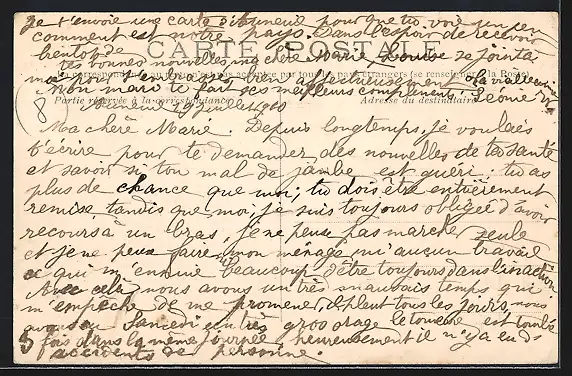 Je t'envoie une carte d' pour que tu voie un peu
comment est notre pays. Dans l'espoir de recevoir
bientôt de
CARTE POSTALE
tes bonnes nouvelles, ma chère Marie, Louise se joint à
moi pour t'embrasser bien affectueusement
Mon mari te fait ses meilleurs compliments. Léonie
Partie réservée à la correspondance
Adresse du destinataire
19 juillet 1910
8
Ma chère Marie. Depuis longtemps, je voulais
t'écrire pour te demander des nouvelles de ta santé
et savoir si ton mal de jambe est guéri; tu as
plus de chance que moi; tu dois être entièrement
remise, tandis que moi, je suis toujours obligée d'avoir
recours à un bras, je ne peux pas marcher seule
et je ne peux faire mon ménage ni aucun travail
ce qui m'ennuie beaucoup d'être toujours dans l'inaction
Avec cela nous avons un très mauvais temps qui
m'empêche de me promener, il pleut tous les jours, nous
avons eu Samedi un très gros orage le tonnerre est tombé
3 fois dans la même journée heureusement il n'y a eu d'
accidents de personne.